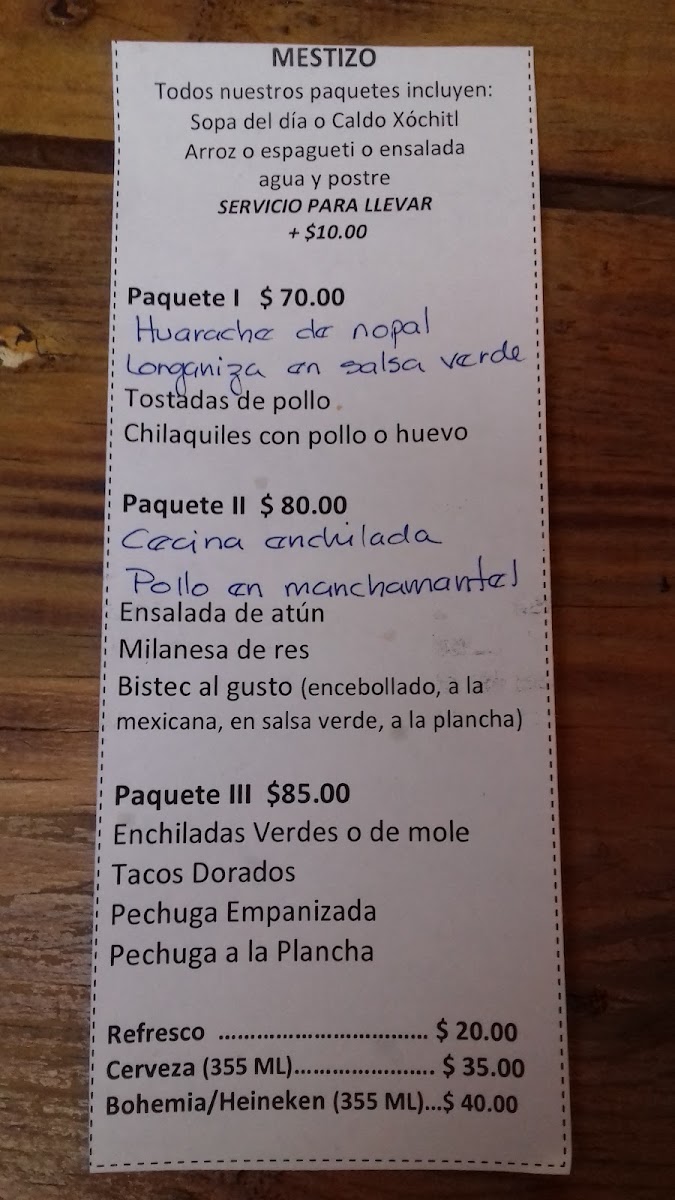 MESTIZO
Todos nuestros paquetes incluyen:
Sopa del día o Caldo Xóchitl
Arroz o espagueti o ensalada
agua y postre
SERVICIO PARA LLEVAR
+ $10.00
Paquete I $ 70.00
Huarache de nopal
Longaniza en salsa verde
Tostadas de pollo
Chilaquiles con pollo o huevo
Paquete II $ 80.00
Cecina enchilada
Pollo en manchamantel
Ensalada de atún
Milanesa de res
Bistec al gusto (encebollado, a la
mexicana, en salsa verde, a la plancha)
Paquete III $85.00
Enchiladas Verdes o de mole
Tacos Dorados
Pechuga Empanizada
Pechuga a la Plancha
Refresco ................................. $ 20.00
Cerveza (355 ML)...................... $ 35.00
Bohemia/Heineken (355 ML)...$ 40.00